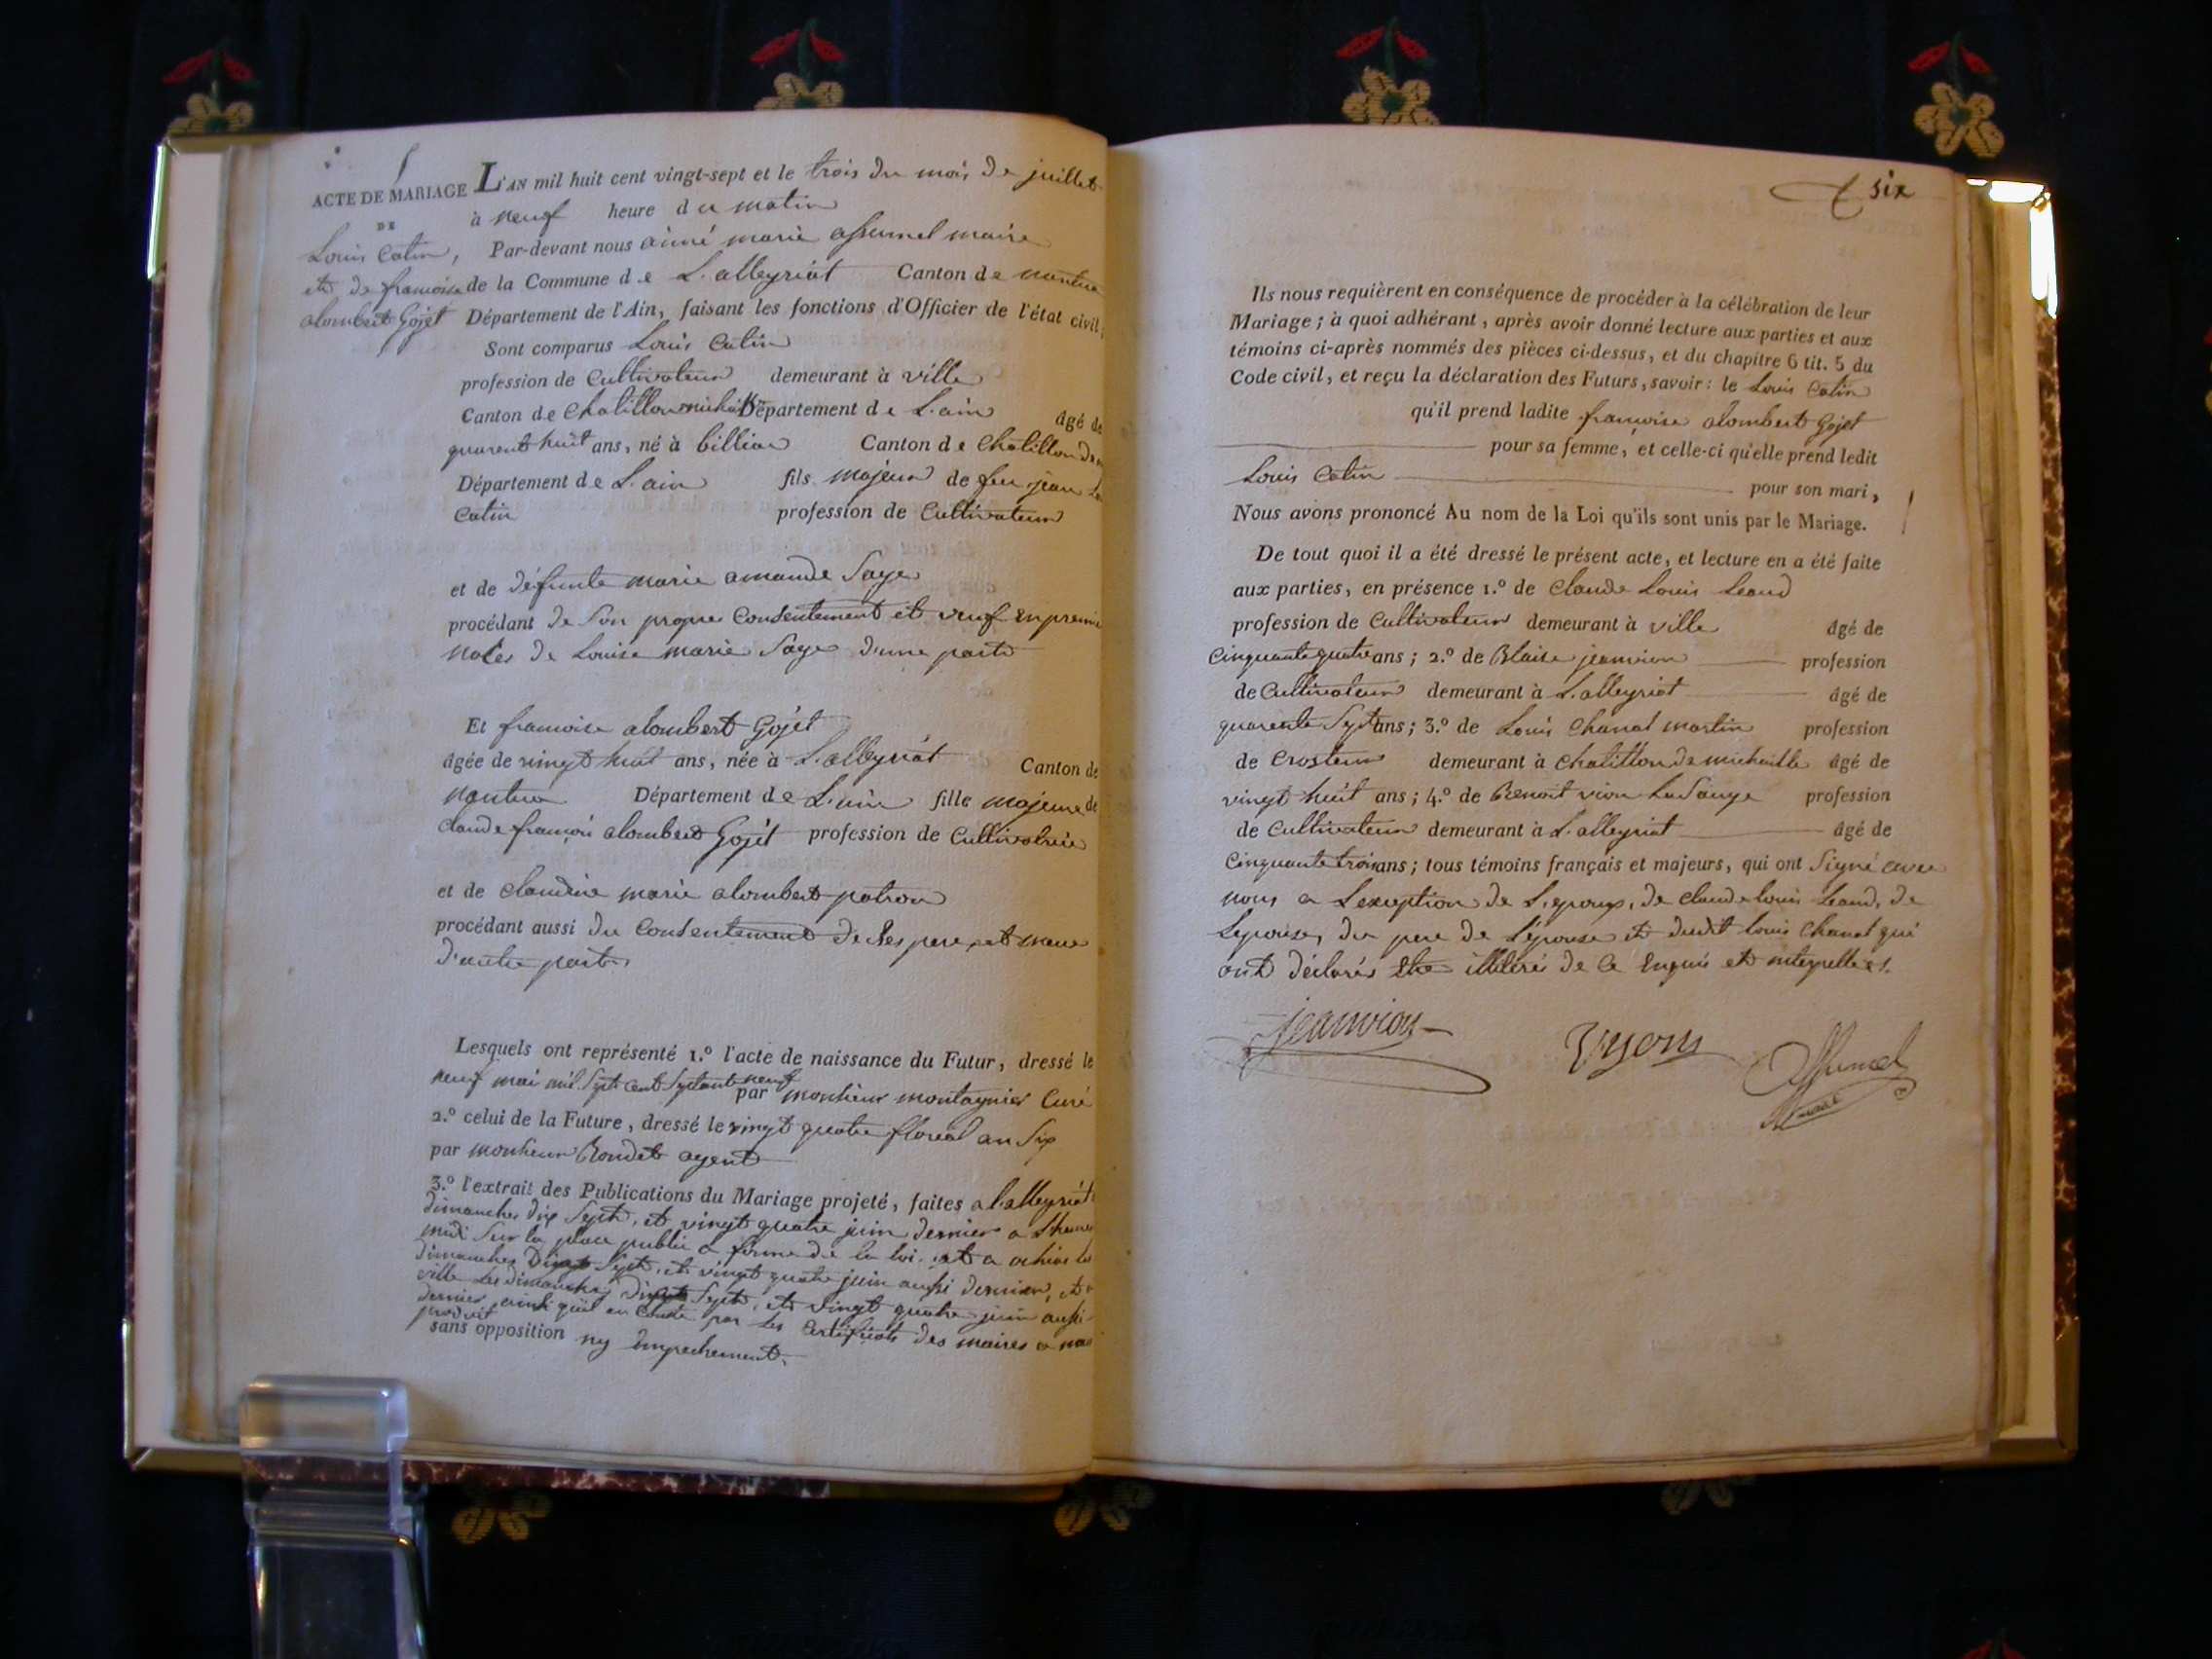 ACTE DE MARIAGE
DE
Louis Catin,
et de francoise
alombert Gojet
L'AN mil huit cent vingt-sept et le trois du mois de juillet
à neuf heure du matin
Par-devant nous aimé marie assumel maire
de la Commune de L'alleyriat Canton de nantua
Département de l'Ain, faisant les fonctions d'Officier de l'état civil,
Sont comparus Louis Catin
profession de Cultivateur demeurant à ville
Canton de Chatillon michaille Département de L'ain âgé de
quarent huit ans, né à billiat Canton de Chatillon de
Département de L'ain fils majeur de feu jean
Catin profession de Cultivateur
et de défunte marie amande Saye
procédant de Son propre Consentement et veuf en premie
noces de Louise marie Saye d'une part
Et francoise alombert Gojet
âgée de vingt huit ans, née à L'alleyriat Canton de
nantua Département de L'ain fille majeure de
claude françois alombert Gojet profession de Cultivatrice
et de claudine marie alombert patron
procédant aussi du Consentement de Ses pere et mere
d'autre part.
Lesquels ont représenté 1.º l'acte de naissance du Futur, dressé le
neuf mai mil Sept cent Septante neuf par monsieur montagnier Curé
2.º celui de la Future, dressé le vingt quatre floreal an Six
par monsieur Rondet agent
3.º l'extrait des Publications du Mariage projeté, faites a l'alleyriat
dimanches dix Sept, et vingt quatre juin dernier a
midi Sur la place public a forme de la loi, et a ochiaz les
dimanches dix Sept, et vingt quatre juin aussi dernier, et a
ville les dimanches dix Sept, et vingt quatre juin aussi
dernier ainsi qu'il en Conste par les Certificats des maires a nous
produit
sans opposition ny Empechement.
six
Ils nous requièrent en conséquence de procéder à la célébration de leur
Mariage; à quoi adhérant, après avoir donné lecture aux parties et aux
témoins ci-après nommés des pièces ci-dessus, et du chapitre 6 tit. 5 du
Code civil, et reçu la déclaration des Futurs, savoir: le Louis Catin
qu'il prend ladite françoise alombert Gojet
pour sa femme, et celle-ci qu'elle prend ledit
Louis Catin pour son mari,
Nous avons prononcé Au nom de la Loi qu'ils sont unis par le Mariage.
De tout quoi il a été dressé le présent acte, et lecture en a été faite
aux parties, en présence 1.º de Claude Louis Leaud
profession de Cultivateur demeurant à ville âgé de
Cinquante quatre ans; 2.º de Blaise jeanvion profession
de Cultivateur demeurant à L'alleyriat âgé de
quarente Sept ans; 3.º de Louis Chanal martin profession
de Crosteur demeurant à Chatillon de michaille âgé de
vingt huit ans; 4.º de Benoit vion profession
de Cultivateur demeurant à L'alleyriat âgé de
Cinquante trois ans; tous témoins français et majeurs, qui ont Signé avec
nous a L'exception de L'epoux, de claude louis Leaud, de
L'epouse, du pere de l'épouse et dudit louis Chanal qui
ont déclarés Etre illiterés de Ce Enquis et interpellés.
jeanvion
Assumel